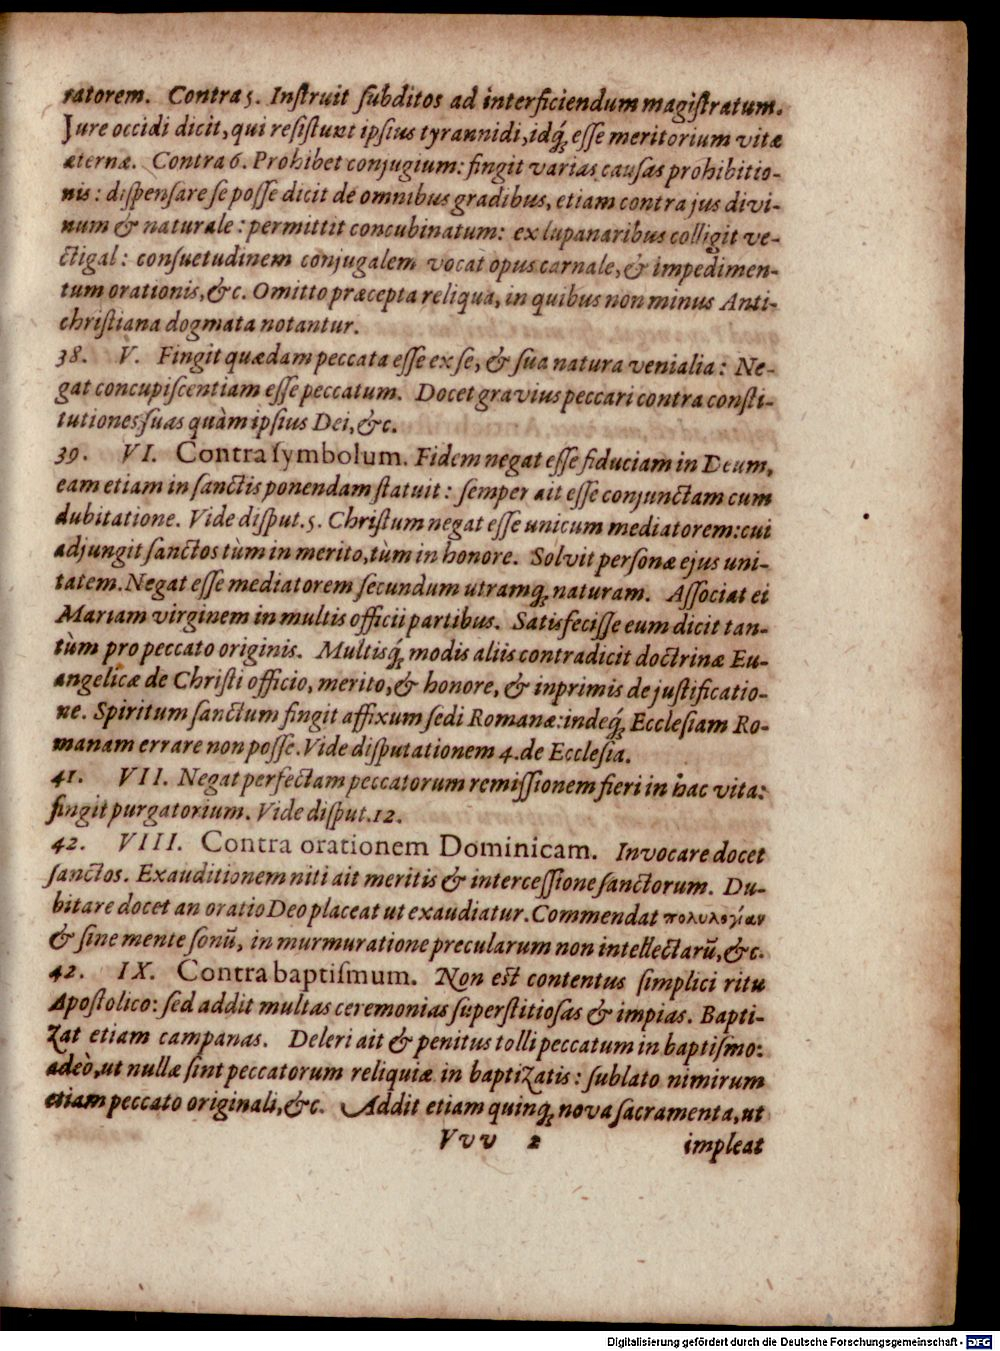 ratorem. Contra 5. Inſtruit ſubditos ad interficiendum magiſtratum.
Jure occidi dicit, qui reſiſtunt ipſius tyrannidi, idq́; eſſe meritorium vitæ
æternæ. Contra 6. Prohibet conjugium: fingit varias cauſas prohibitio-
nis: diſpenſare ſe poſſe dicit de omnibus gradibus, etiam contra jus divi-
num & naturale: permittit concubinatum: ex lupanaribus colligit ve-
ctigal: conſuetudinem conjugalem vocat opus carnale, & impedimen-
tum orationis, &c. Omitto præcepta reliqua, in quibus non minus Anti-
chriſtiana dogmata notantur.
38. V. Fingit quædam peccata eſſe ex ſe, & ſua natura venialia: Ne-
gat concupiſcentiam eſſe peccatum. Docet gravius peccari contra conſti-
tutiones ſuas quàm ipſius Dei, &c.
39. VI. Contra ſymbolum. Fidem negat eſſe fiduciam in Deum,
eam etiam in ſanctis ponendam ſtatuit: ſemper ait eſſe conjunctam cum
dubitatione. Vide diſput. 5. Chriſtum negat eſſe unicum mediatorem: cui
adjungit ſanctos tùm in merito, tùm in honore. Solvit perſonæ ejus uni-
tatem. Negat eſſe mediatorem ſecundum utramq; naturam. Aſſociat ei
Mariam virginem in multis officii partibus. Satisfeciſſe eum dicit tan-
tùm pro peccato originis. Multisq́; modis aliis contradicit doctrinæ Eu-
angelicæ de Chriſti officio, merito, & honore, & inprimis de juſtificatio-
ne. Spiritum ſanctum fingit affixum ſedi Romanæ: indeq́; Eccleſiam Ro-
manam errare non poſſe. Vide diſputationem 4. de Eccleſia.
41. VII. Negat perfectam peccatorum remiſſionem fieri in hac vita:
fingit purgatorium. Vide diſput. 12.
42. VIII. Contra orationem Dominicam. Invocare docet
ſanctos. Exauditionem niti ait meritis & interceſſione ſanctorum. Du-
bitare docet an oratio Deo placeat ut exaudiatur. Commendat πολυλογίαν
& ſine mente ſonũ, in murmuratione precularum non intellectarũ, &c.
42. IX. Contra baptiſmum. Non eſt contentus ſimplici ritu
Apoſtolico: ſed addit multas ceremonias ſuperſtitioſas & impias. Bapti-
zat etiam campanas. Deleri ait & penitus tolli peccatum in baptiſmo:
adeò, ut nullæ ſint peccatorum reliquiæ in baptizatis: ſublato nimirum
etiam peccato originali, &c. Addit etiam quinq; nova ſacramenta, ut
Vvv 2 impleat
Digitalisierung gefördert durch die Deutsche Forschungsgemeinschaft - DFG